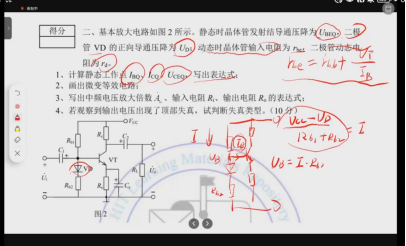 得分
二、基本放大电路如图 2 所示。静态时晶体管发射结导通压降为 U_BEQ，二极
管 VD 的正向导通压降为 U_D，动态时晶体管输入电阻为 r_be，二极管动态电
阻为 r_d。
r_be = r_bb' + U_T / I_B
1、计算静态工作点 I_BQ、I_CQ、U_CEQ，写出表达式；
2、画出微变等效电路；
3、写出中频电压放大倍数 A_u、输入电阻 R_i、输出电阻 R_o 的表达式；
4、若观察到输出电压出现了顶部失真，试判断失真类型。（10 分）
+V_CC
R_b1
R_c
C_2
C_1
VT
VD
R_L
R_b2
R_e
C_e
U_i
U_o
图 2
I
U_B
I_B
= I
U_B = I · R_b2